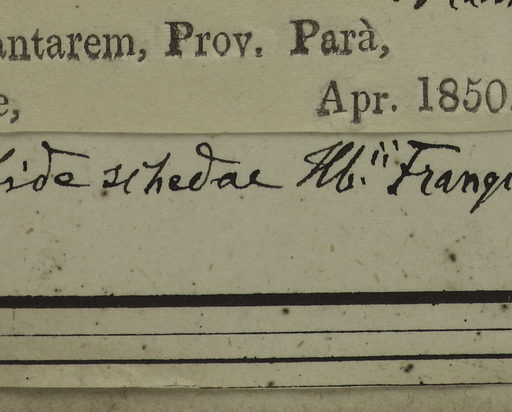 antarem, Prov. Parà,
e, Apr. 1850.
Vide schedae Hb.ii Franq